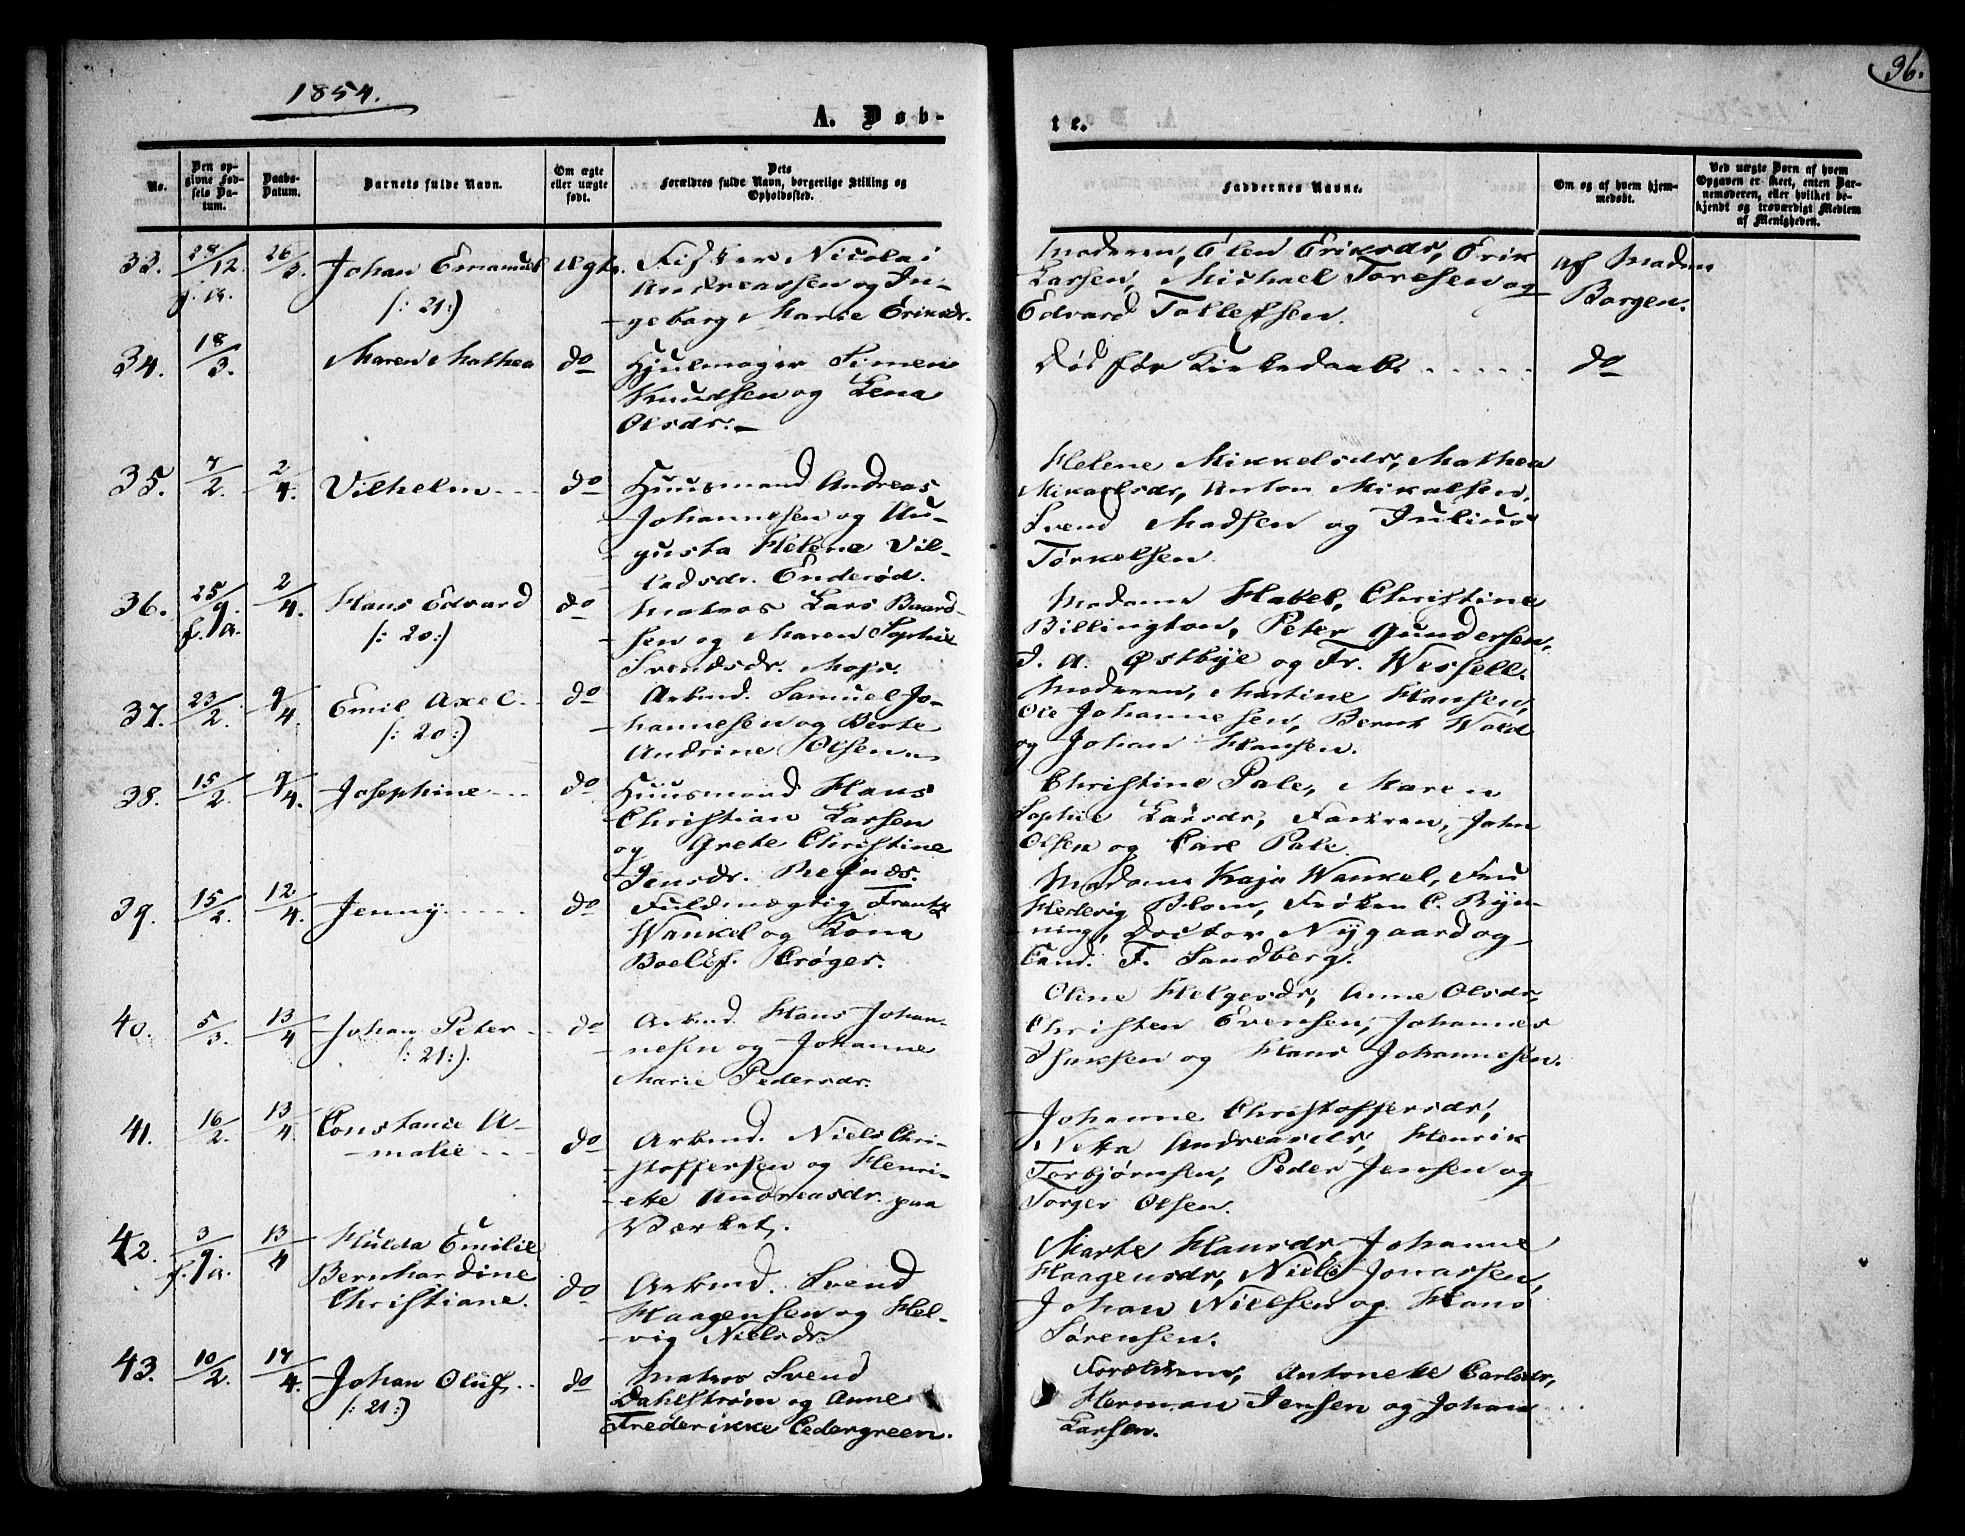 1854.
36.
A. Døb-
te.
No.
Den op-
givne Fød-
sels Da-
tum.
Daabs-
Datum.
Barnets fulde Navn.
Om ægte
eller uægte
født.
Dets
Forældres fulde Navn, borgerlige Stilling og
Opholdssted.
Faddernes Navne.
Om og af hvem hjem-
medøbt.
Ved uægte Børn af hvem
Opgaven er skeet, enten Bar-
nemoderen, eller hvilket be-
kjendt og troværdigt Medlem
af Menigheden.
33. 28/12. f. A. 26/3. Johan Emanuel
(: 21:)
Ægte.
Fisker Nicolai
Andreassen og In-
geborg Marie Eriksdr.
Moderen, Elen Eriksdr, Erik
Larsen, Michael Toresen og
Edvard Tollefsen.
af Madm
Borgen.
34. 18/3. Maren Mathea do
Hjulmager Simen
Knudsen og Lena
Olsdr.
Død før Kirkedaab.
do
35. 7/2. 2/4. Vilhelm do
Huusmand Andreas
Johannesen og Au-
gusta Helene Vil-
ladsdr. Enderød.
Helene Mikkelsdr, Mathea
Mikaelsdr, Anton Mikalsen,
Svend Madsen og Julius
Tørkelsen.
36. 25/9. f. A. 2/4. Hans Edvard
(: 20:)
do
Matros Lars Baard-
sen og Maren Sophie
Svendsdr. Moss.
Madame Habel, Christine
Billington, Peter Gundersen,
J. A. Østbye og Fr. Wessell.
37. 23/2. 9/4. Emil Axel
(: 20:)
do
Arbmd. Samuel Jo-
hannesen og Berte
Andrine Olsen
Moderen, Martine Hansen,
Ole Johannesen, Bernt Wold
og Johan Hansen.
38. 15/2. 9/4. Josephine do
Huusmand Hans
Christian Larsen
og Grete Christine
Jensdr. Refsnæs.
Christine Pale, Maren
Sophie Larsdr, Faderen, John
Olsen og Carl Pale.
39. 15/2. 12/4. Jenny do
Fuldmægtig Frantz
Wankel og Lona
Boelef. Crøger.
Madame Kaja Wankel, Fru
Hedevig Blom, Frøken C. Byn-
ning, Doctor Nygaard og
Cand. F. Sandberg.
40. 5/3. 13/4 Johan Peter
(: 21:).
do
Arbmd. Hans Johan-
nesen og Johanne
Marie Pedersdr.
Oline Helgesdr, Anne Olsdr,
Christen Evensen, Johannes
Isaksen og Hans Johannesen.
41. 16/2. 13/4. Constance A-
malie
do
Arbmd. Niels Chri-
stoffersen og Henri-
ette Andreasdr. paa
Værket.
Johanne Christoffersdr,
Netta Andreasdr, Henrik
Torbjørnsen, Peder Jensen og
Torger Olsen.
42. 3/9. f. A. 13/4 Hulda Emilie
Bernhardine
Christiane.
do
Arbmd. Svend
Haagensen og Hel-
vig Nielsdr.
Marte Hansdr, Johanne
Haagensdr, Niels Jonassen,
Johan Nielsen og Hans
Sørensen.
43. 10/2. 17/4. Johan Oluf
(: 21:)
do
Matros Svend
Dahlstrøm og Anne
Frederikke Cedergreen.
Forældrene, Antonette Carlsdr,
Herman Jensen og Johan
Larsen.